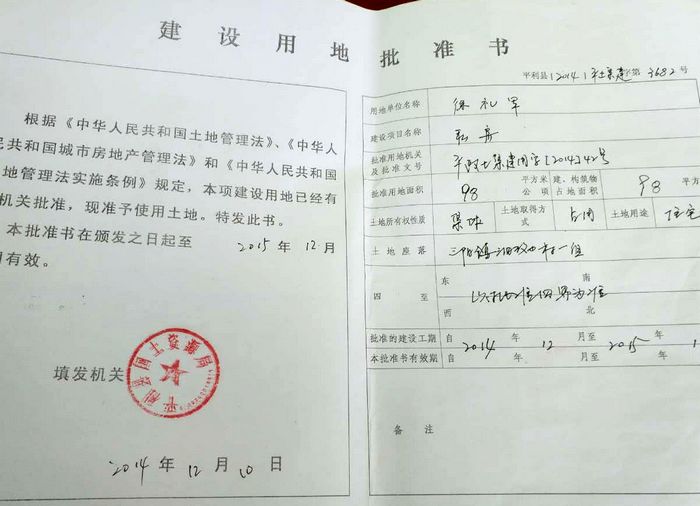 建设用地批准书
根据《中华人民共和国土地管理法》、《中华人
民共和国城市房地产管理法》和《中华人民共和国
地管理法实施条例》规定，本项建设用地已经有
机关批准，现准予使用土地。特发此书。
本批准书在颁发之日起至 2015 年 12 月
有效。
填发机关
平利县国土资源局
2014 年 12 月 10 日
平利县(2014)平土集建字第3682号
用地单位名称 徐礼军
建设项目名称 私房
批准用地机关及批准文号 平政土集建用字[2014]42号
批准用地面积 98 平方米 公顷 建、构筑物占地面积 98 平方
土地所有权性质 集体 土地取得方式 占用 土地用途 住宅
土地座落 三阳镇 村一组
四至 东 南 西 北 以 四界为准
批准的建设工期 自 2014 年 12 月至 2015 年 1
本批准书有效期 自 年 月至 年
备注